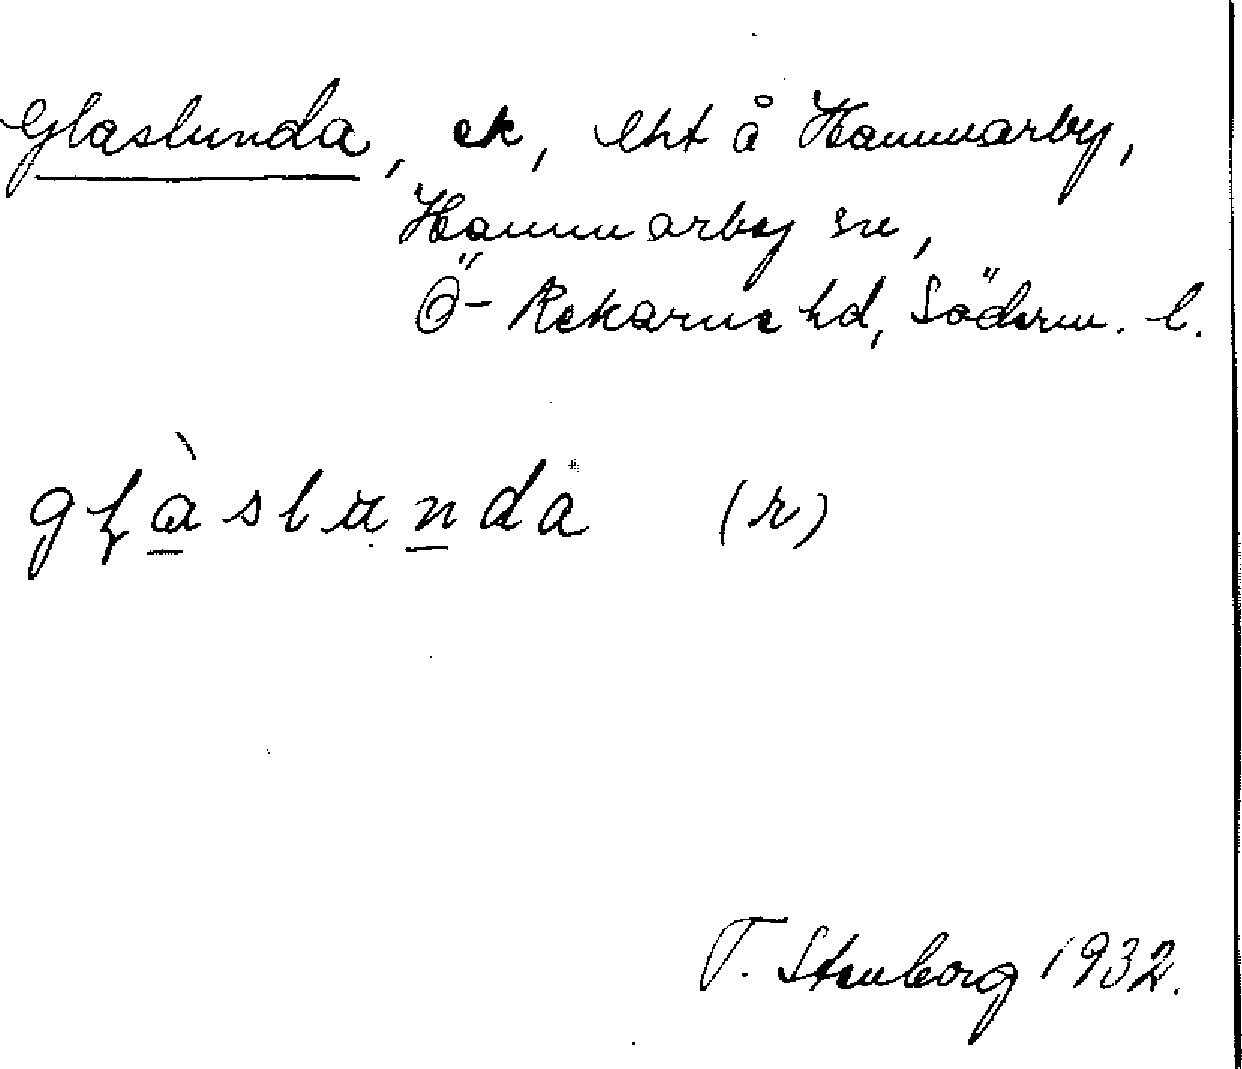 Glaslunda, ek, lht å Hammarby,
Hammarby sn,
Ö-Rekarne hd, Söderm. l.
gɫàslunda (r)
T. Stenborg 1932.